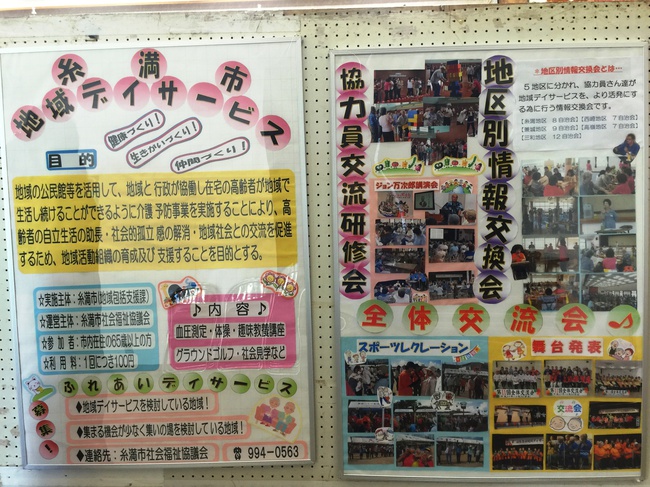 糸満市
地域デイサービス
健康づくり!
生きがいづくり!
仲間づくり!
目的
地域の公民館等を活用して、地域と行政が協働し在宅の高齢者が地域で
生活し続けることができるように介護予防事業を実施することにより、高
齢者の自立生活の助長・社会的孤立感の解消・地域社会との交流を促進
するため、地域活動組織の育成及び支援することを目的とする。
☆実施主体:糸満市(地域包括支援課)
☆運営主体:糸満市社会福祉協議会
☆参加者:市内在住の65歳以上の方
☆利用料:1回につき100円
♪内容♪
血圧測定・体操・趣味教養講座
グラウンドゴルフ・社会見学など
ふれあいデイサービス
募集!
◆地域デイサービスを検討している地域!
◆集まる機会が少なく集いの場を検討している地域!
◆連絡先:糸満市社会福祉協議会 ☎994-0563
協力員交流研修会
ジョン万次郎講演会
地区別情報交換会
※地区別情報交換会とは…
5地区に分かれ、協力員さん達が
地域デイサービスを、より活発にす
る為に行う情報交換会です。
【糸満地区 8自治会】【西崎地区 7自治会】
【兼城地区 9自治会】【高嶺地区 7自治会】
【三和地区 12自治会】
全体交流会♪
スポーツレクレーション
舞台発表
交流会